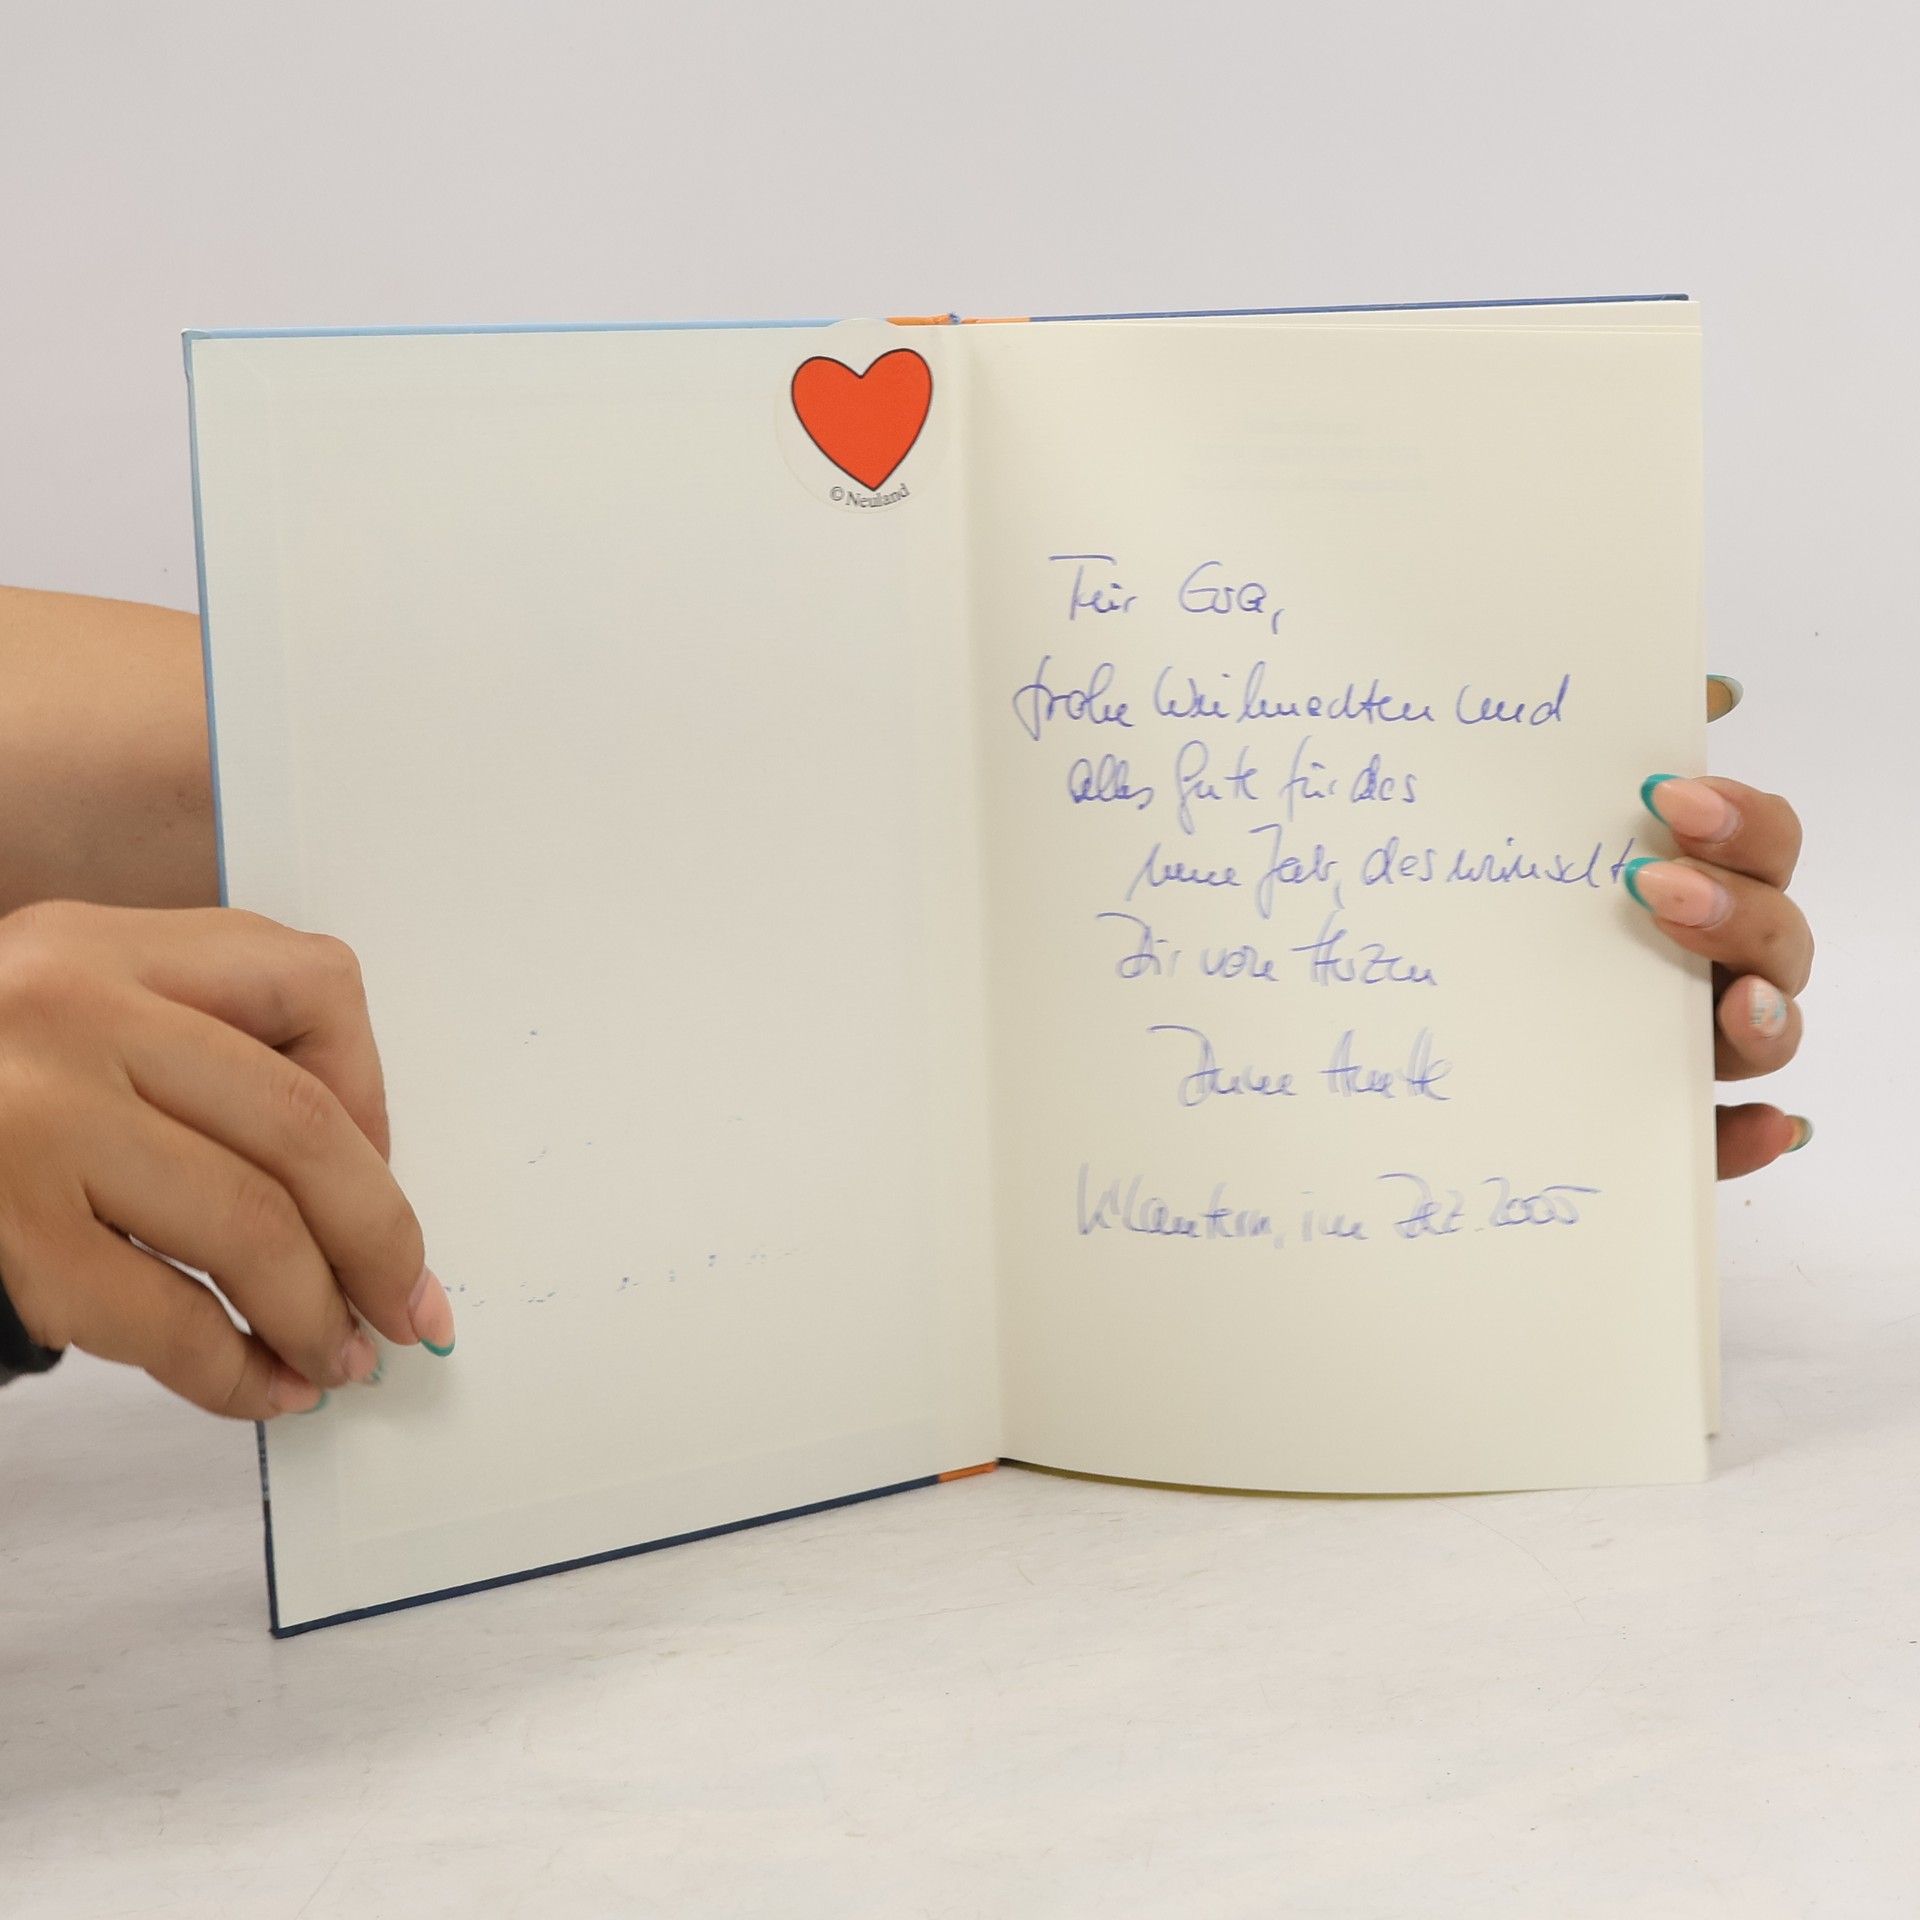 © Neuland
Für Eva,
frohe Weihnachten und
alles Gute für das
neue Jahr, das wünscht
Dir von Herzen
Deine Anette
im Dez. 2005